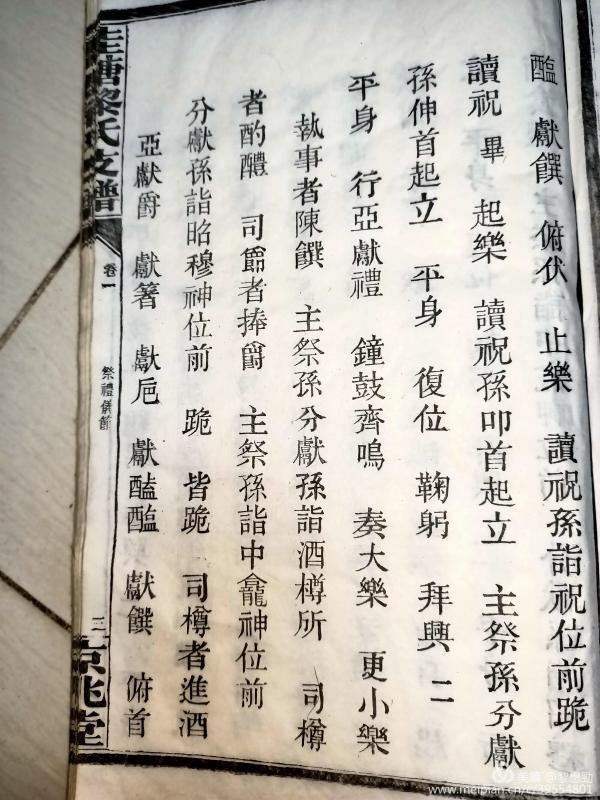 醢　獻饌　俯伏　止樂　讀祝孫詣祝位前跪
讀祝　畢　起樂　讀祝孫叩首起立　主祭孫分獻
孫伸首起立　平身　復位　鞠躬　拜興　二
平身　行亞獻禮　鐘鼓齊鳴　奏大樂　更小樂
執事者陳饌　主祭孫分獻孫詣酒樽所　司樽
者酌醴　司爵者捧爵　主祭孫詣中龕神位前
分獻孫詣昭穆神位前　跪　皆跪　司樽者進酒
亞獻爵　獻箸　獻卮　獻醯醢　獻饌　俯首
塘黎氏支譜
卷一
祭禮儀節
三
京兆堂
美篇
www.meipian.cn/c/39554801